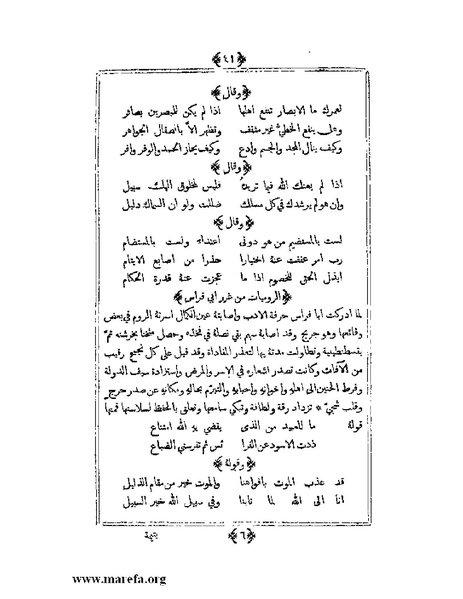 ﴿٤١﴾
﴿وقال﴾
لعمرك ما الابصار تنفع اهلها اذا لم يكن للمبصرين بصائر
وهل ينفع الخطيّ غير مثقف وتظهر الاّ بالصقال الجواهر
وكيف ينال المجد والجسم وادع وكيف يحاز الحمد والوفر وافر
﴿وقال﴾
اذا لم يعنك الله فيما تريدُ فليس لمخلوق اليك سبيل
وان هو لم يرشدك في كل مسلك ضللت ولو ان السماك دليل
﴿وقال﴾
لست بالمستضيم من هو دوني اعتداء ولست بالمستضام
رب امر عففت عنه اختيارا حذرا من اصابع الايتام
ابذل الحق للخصوم اذا ما عجزت عنه قدرة الحكام
﴿الروميات من غرر ابي فراس﴾
لما ادركت ابا فراس حرفة الادب واصابته عين الكمال اسرته الروم في بعض
وقائعها وهو جريح وقد اصابه سهم بقي نصله في فخذه وحصل مثخنا بخرشنه ثمّ
بقسطنطينية وتطاولت مدته بها لتعذر المفاداة وقد قيل على كل نجيح رقيب
من الآفات وكانت تصدر اشعاره في الاسر والمرض واستزادة سيف الدولة
وفرط الحنين الى اهله واخوانه واحبابه والتبرّم بحاله ومكانه عن صدر حرج
وقلب شجيّ * تزداد رقة ولطافة وتبكي سامعها وتعلق بالحفظ لسلاستها فمنها
قوله ما للعبيد من الذى يقضي به الله امتناع
ذدت الاسود عن الفرا ئس ثم تفرسني الضباع
﴿وقوله﴾
قد عذب الموت بافواهنا والموت خير من مقام الذليل
انا الى الله لما نابنا وفي سبيل الله خير السبيل
﴿٦﴾ يتيمة
www.marefa.org